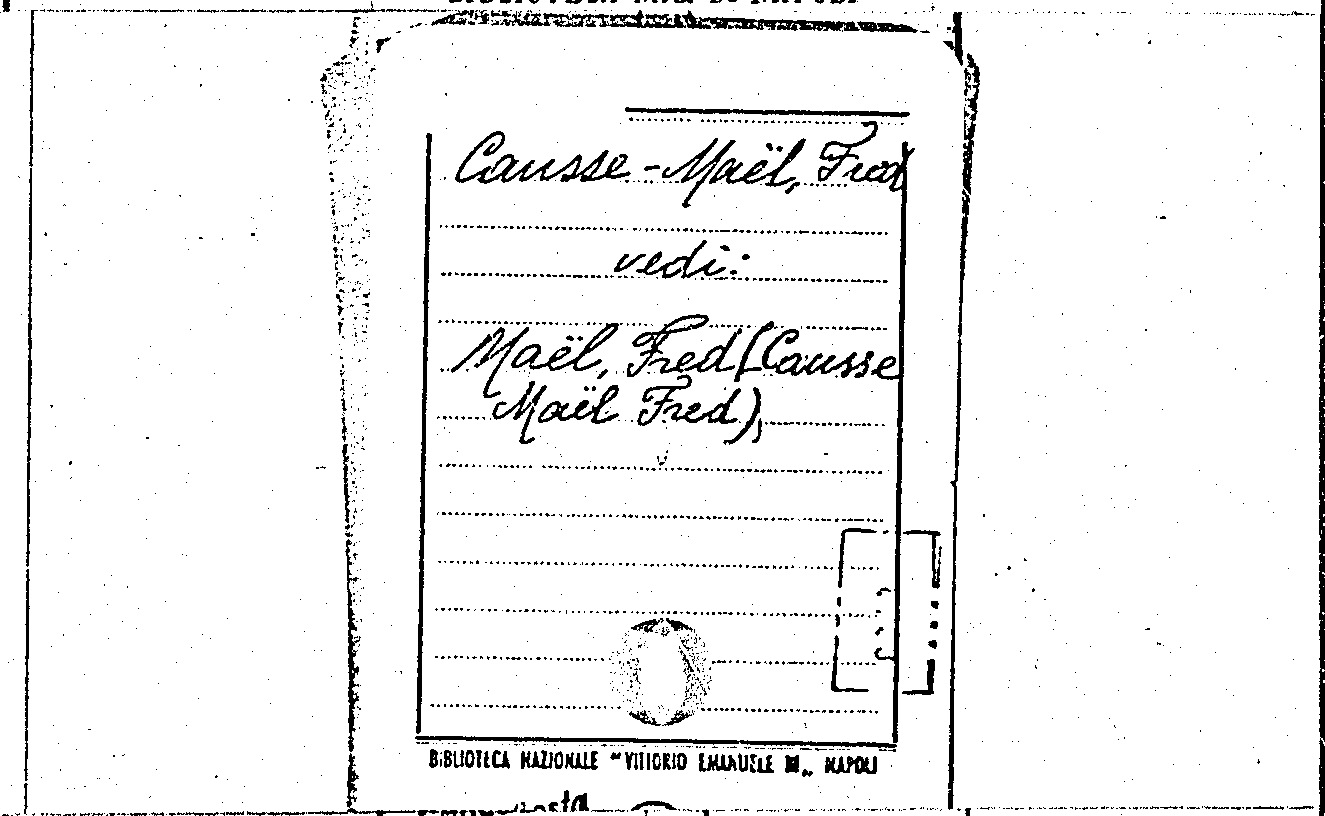 Causse-Maël, Fred
vedi:
Maël, Fred (Causse
Maël Fred),
BIBLIOTECA NAZIONALE "VITTORIO EMANUELE III„ NAPOLI